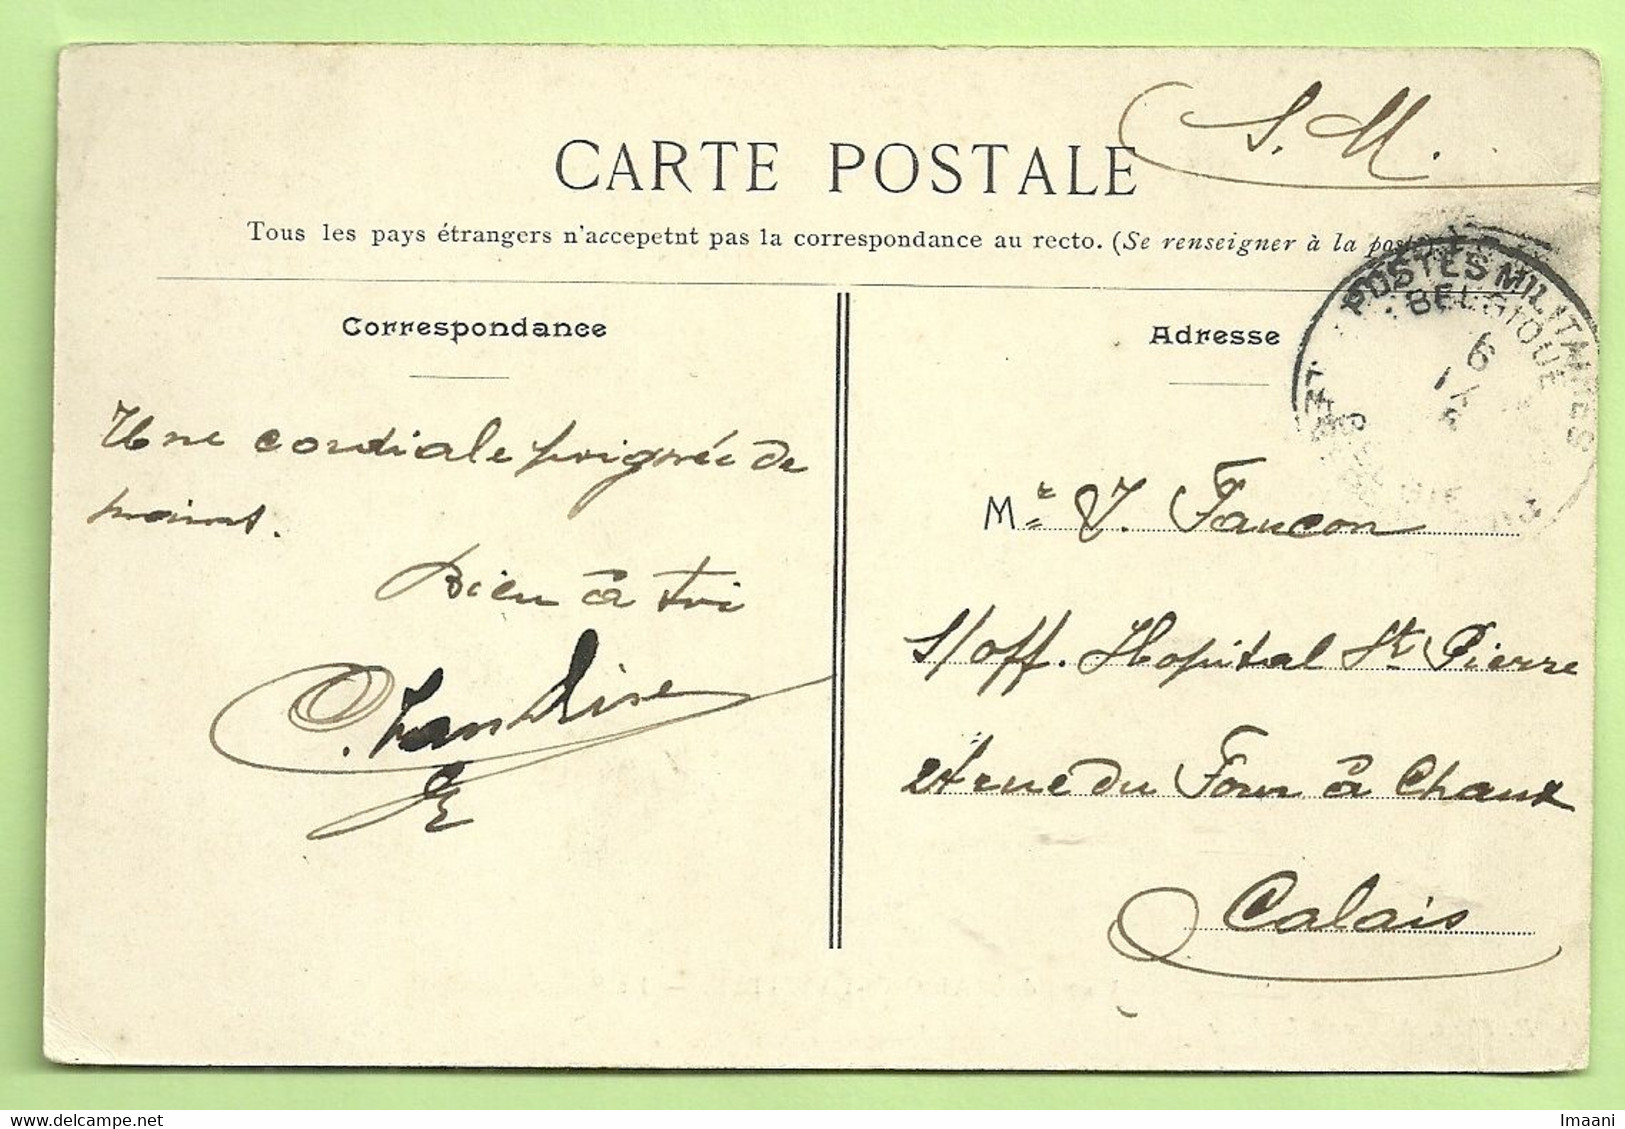 S. M.
CARTE POSTALE
Tous les pays étrangers n'accepetnt pas la correspondance au recto. (Se renseigner à la poste)
POSTES MILITAIRES
BELGIQUE
6
Correspondance
Adresse
Une cordiale poignée de
mains.
Bien à toi
Mr V. Faucon
S/off. Hopital St Pierre
rue du Four à Chaux
Calais
delcampe.net
Imaani